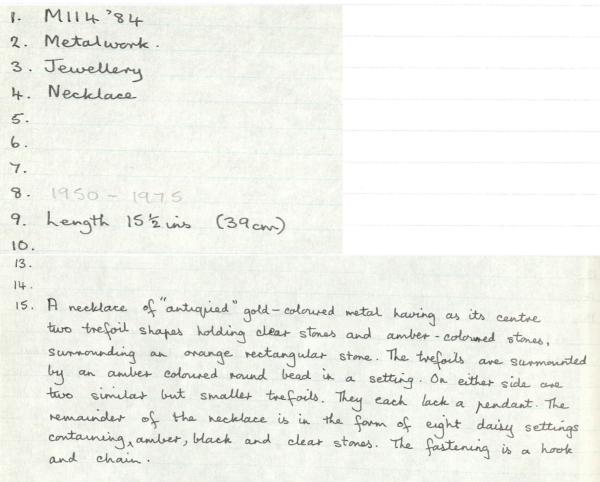 1. M114 '84
2. Metalwork.
3. Jewellery
4. Necklace
5.
6.
7.
8. 1950 - 1975
9. Length 15½ ins (39cm)
10.
13.
14.
15. A necklace of "antiqued" gold-coloured metal having as its centre
two trefoil shapes holding clear stones and amber-coloured stones,
surrounding an orange rectangular stone. The trefoils are surmounted
by an amber coloured round bead in a setting. On either side are
two similar but smaller trefoils. They each lack a pendant. The
remainder of the necklace is in the form of eight daisy settings
containing, amber, black and clear stones. The fastening is a hook
and chain.